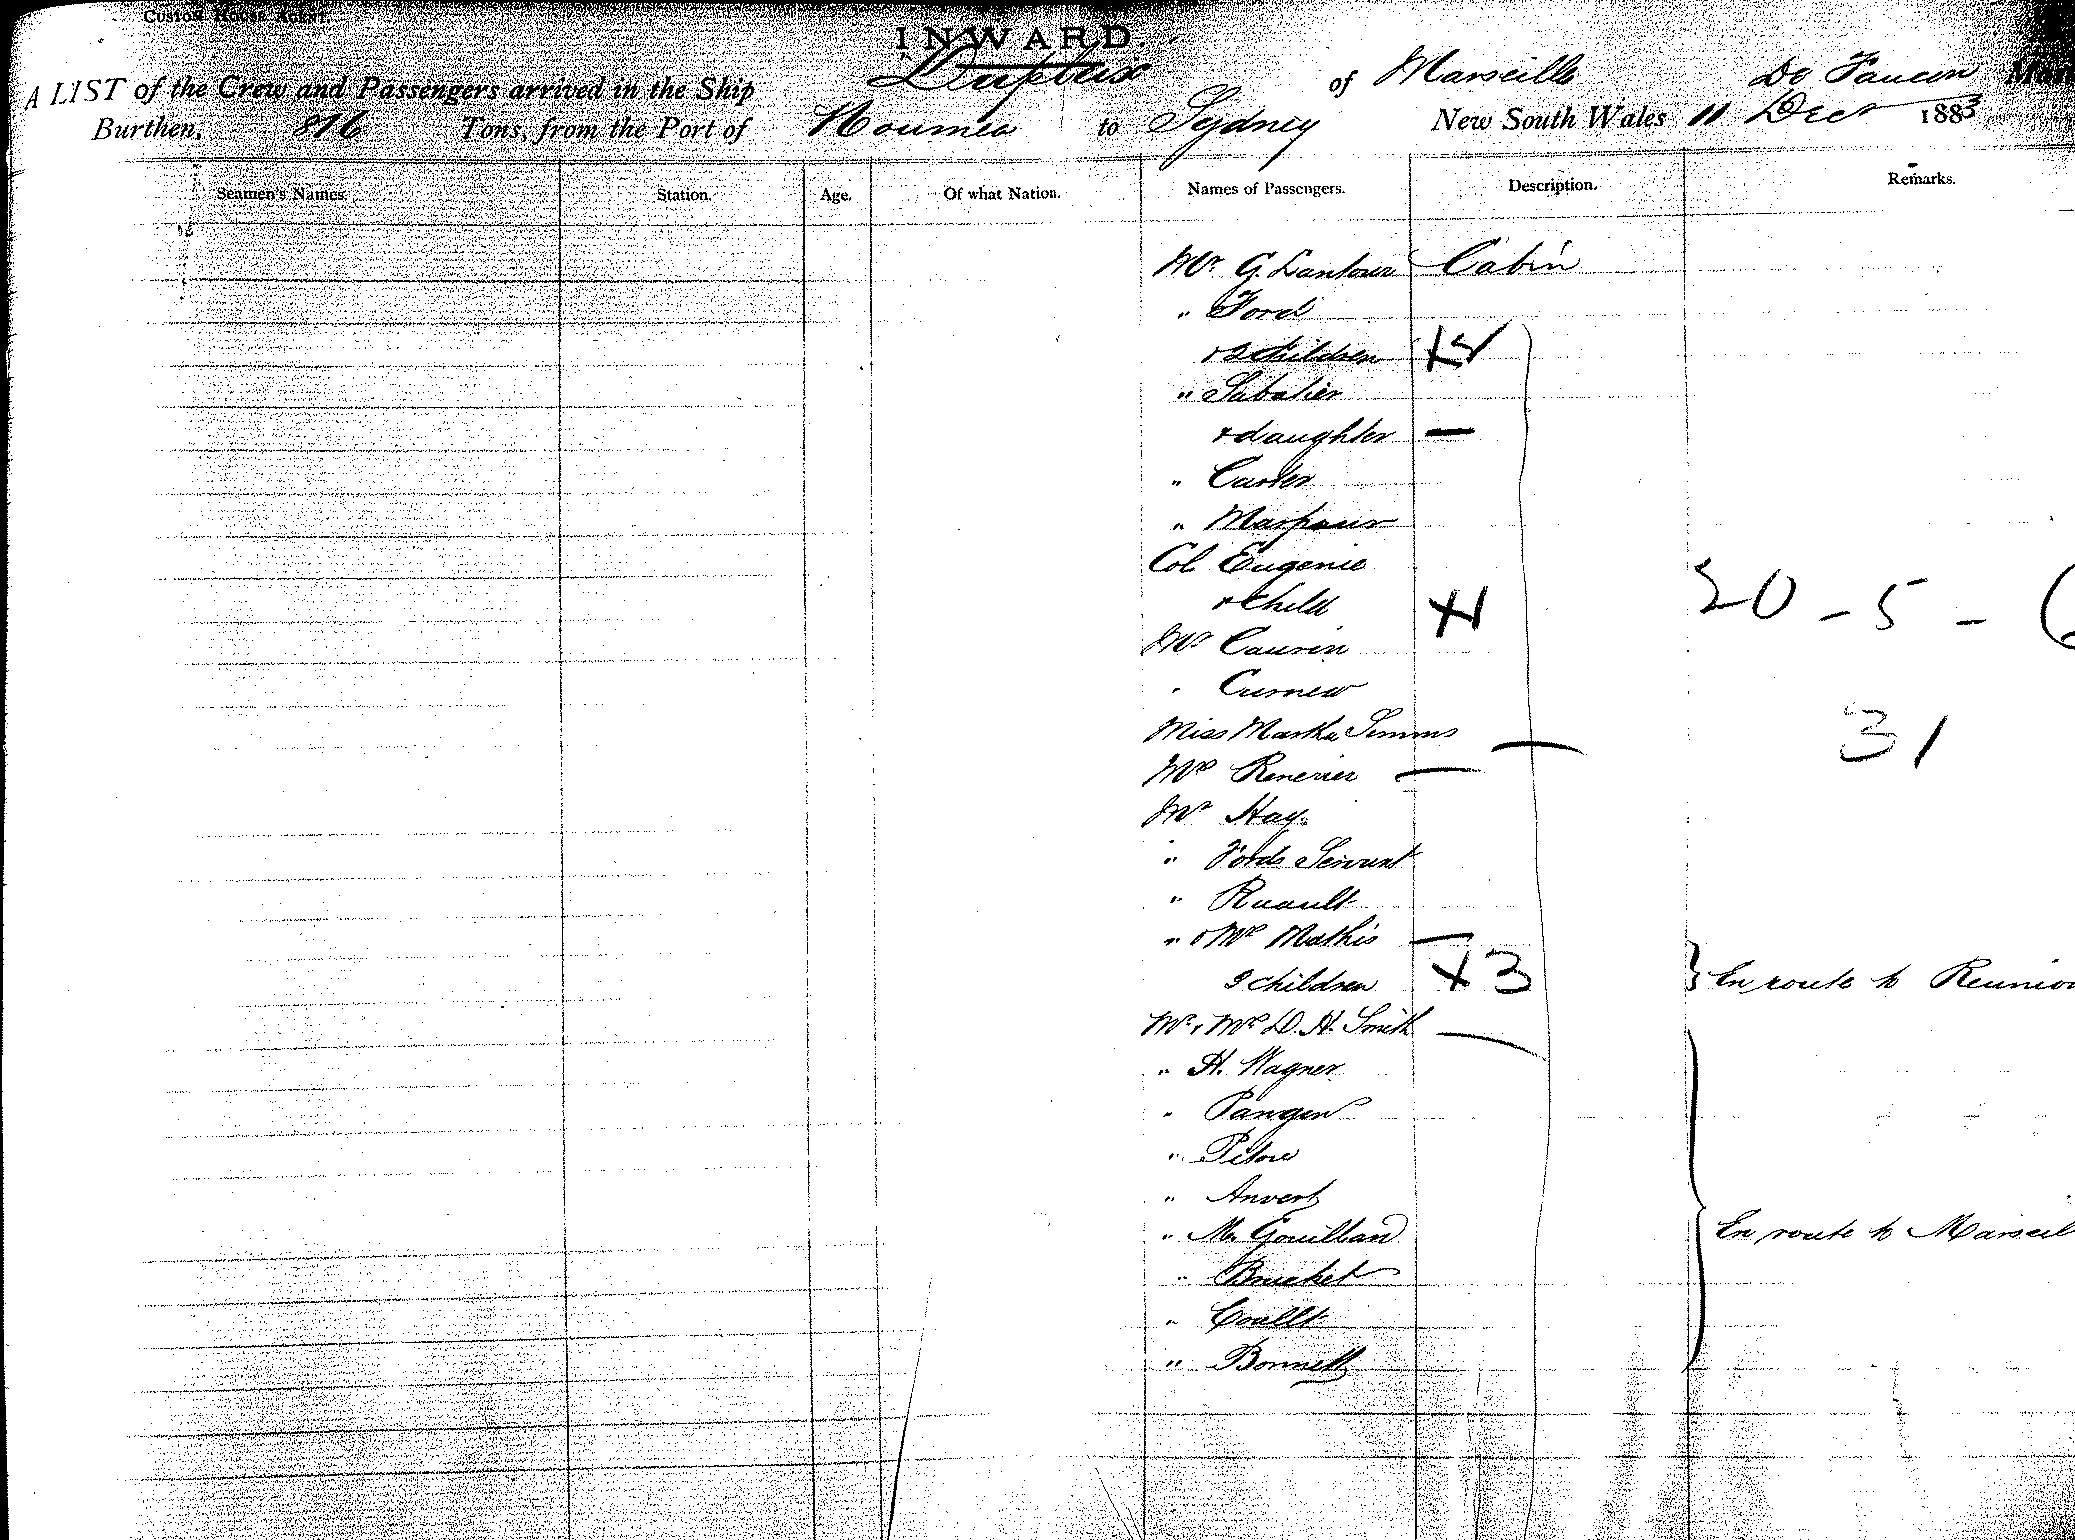 CUSTOM HOUSE AGENT.
INWARD.
A LIST of the Crew and Passengers arrived in the Ship Dupleix of Marseille De Faucon Mas
Burthen, 876 Tons, from the Port of Noumea to Sydney New South Wales 11 Decr 1883
Seamen's Names. Station. Age. Of what Nation. Names of Passengers. Description. Remarks.
Mr. G. Cabin
" Ford
children
" Sabatier
+ daughter —
" Carter
"
Col Eugenie
+ child X1
20 - 5 - 6
Mr Caurin
" Curnew
Miss Martha Simms —
31
Me Renevier —
Mr Hay.
" Fords Servant
" Ruault
" & Me Mathis —
children +3
} En route to Reunion
Mr, Me D. H. Smith —
" H. Wagner
"
"
" Anvert
" M. Gouillan
} En route to Marseil
" Bruchet
"
" Bonnett